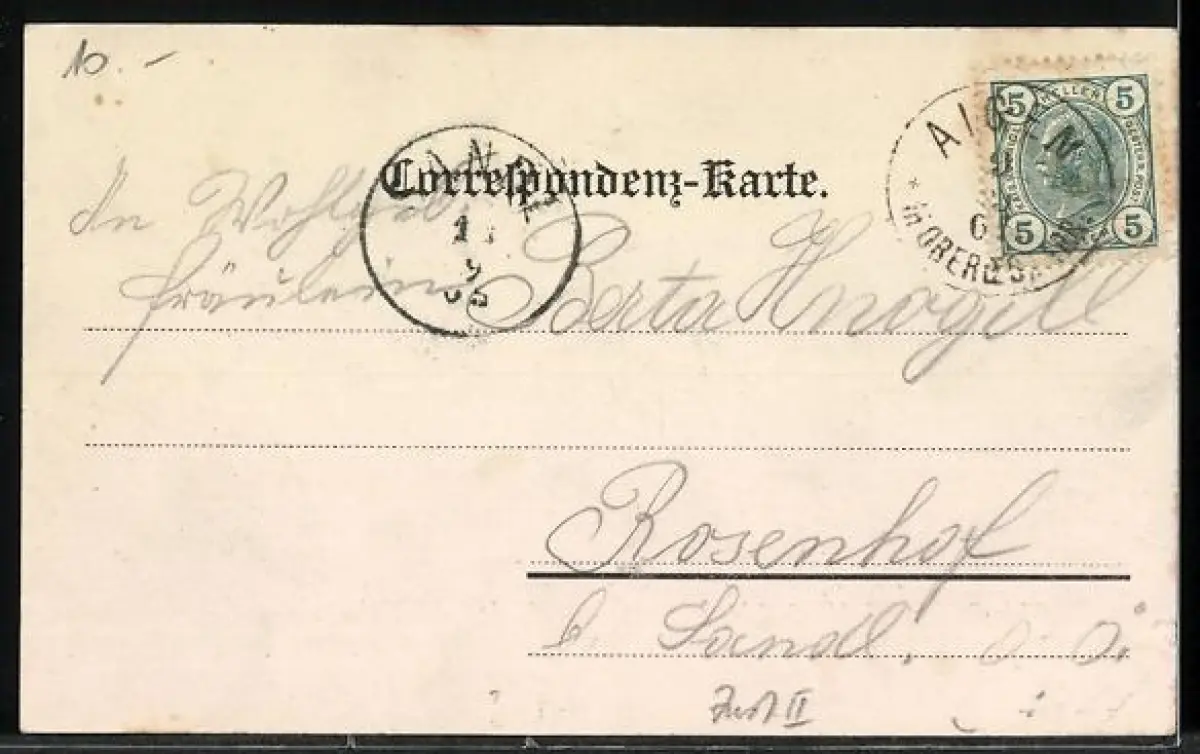 10.-
Correspondenz-Karte.
5 HELLER 5
5 5
AIGEN
6
IN OBERÖST
18
9
An Wohlgeb.
Fräulein Berta
Rosenhof
b. Sandl. O. Ö.
Zust II